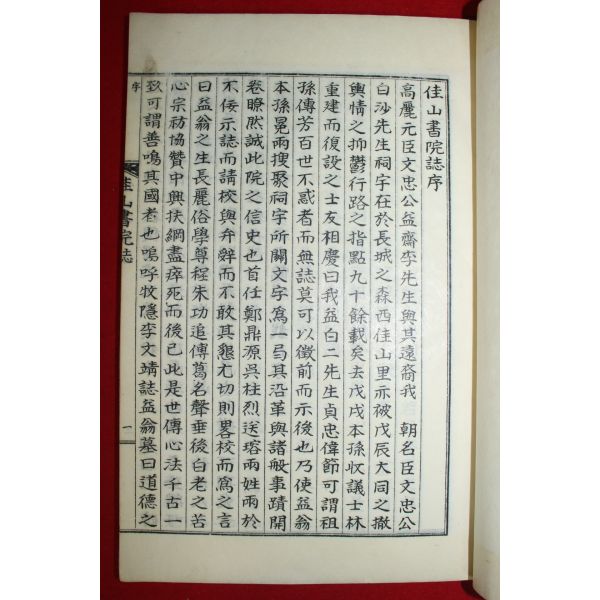 佳山書院誌序
高麗元臣文忠公益齋李先生與其遠裔我 朝名臣文忠公
白沙先生祠宇在於長城之森西佳山里亦被戊辰大同之撤
輿情之抑鬱行路之指點九十餘載矣去戊戌本孫收議士林
重建而復設之士友相慶曰我益白二先生貞忠偉節可謂祖
孫傳芳百世不惑者而無誌莫可以徵前而示後也乃使益翁
本孫冕兩搜聚祠宇所關文字爲一弓其沿革與諸般事蹟開
卷瞭然誠此院之信史也首任鄭鼎源吳柱烈送瑢兩姓甭於
不佞示誌而請校與弁辭而不敢其懇尤切則畧校而爲之言
曰益翁之生長麗俗學尊程朱功追傅葛名聲垂後白老之苦
心宗祊協贊中興扶綱盡瘁死而後已此是世傳心法千古一
致可謂善鳴其國者也嗚呼牧隱李文靖誌益翁墓曰道德之
序
佳山書院誌
一